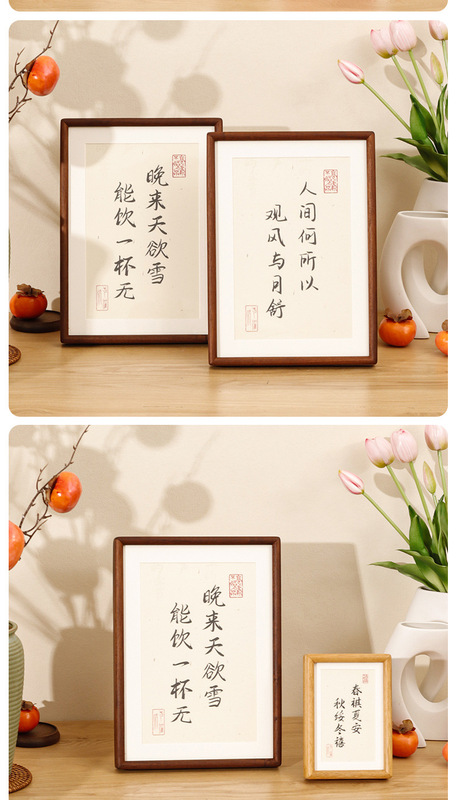 晚来天欲雪
能饮一杯无
人间何所以
观风与月舒
晚来天欲雪
能饮一杯无
春祺夏安
秋绥冬禧